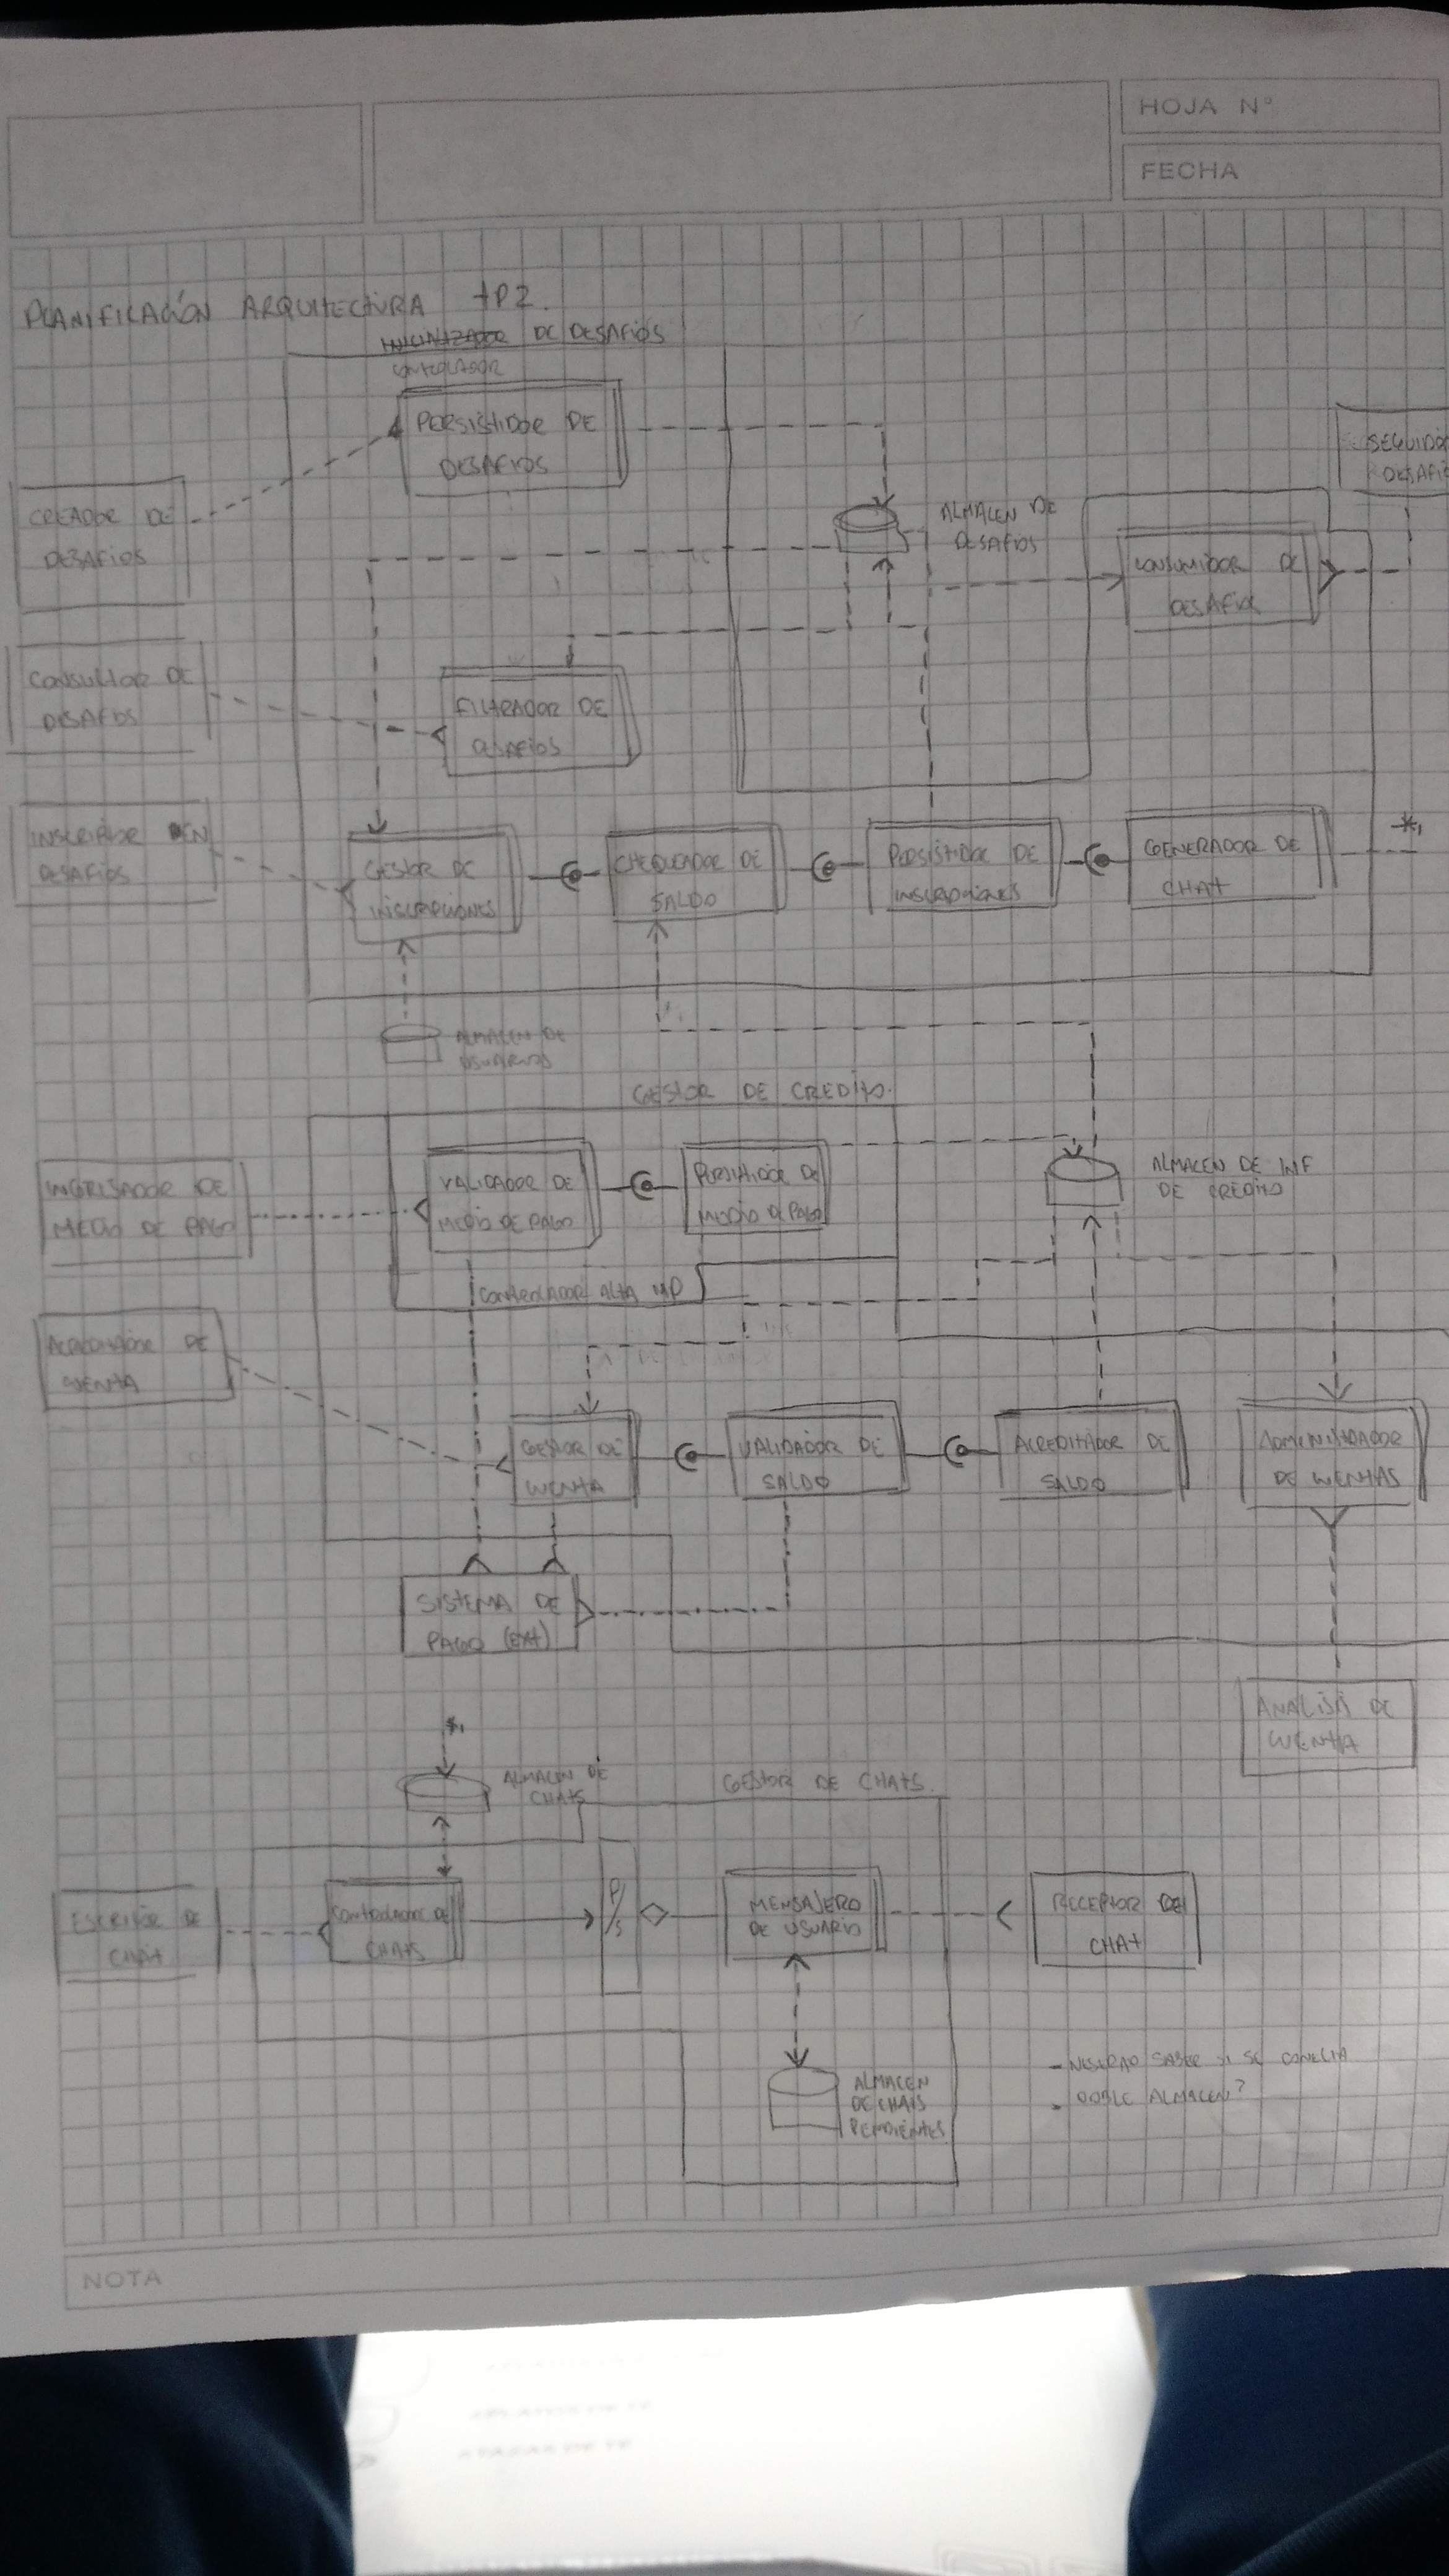 HOJA Nº
FECHA
PLANIFICACIÓN ARQUITECTURA TP2.
DE DESAFIOS
CONTROLADOR
PERSISTIDOR DE
DESAFIOS
SEGUIDO
DESAFIO
CREADOR DE
DESAFIOS
ALMACEN DE
DESAFIOS
CONSUMIDOR DE
DESAFIOS
CONSULTOR DE
DESAFIOS
FILTRADOR DE
DESAFIOS
INSCRIPTOR EN
DESAFIOS
GESTOR DE
INSCRIPCIONES
CHEQUEADOR DE
SALDO
PERSISTIDOR DE
INSCRIPCIONES
GENERADOR DE
CHAT
*1
ALMACEN DE
USUARIOS
GESTOR DE CREDITO.
INGRESADOR DE
MEDIO DE PAGO
VALIDADOR DE
MEDIO DE PAGO
PERSISTIDOR DE
MEDIO DE PAGO
ALMACEN DE INF
DE CREDITO
CONTROLADOR ALTA MP
ACREDITADOR DE
CUENTA
GESTOR DE
CUENTA
VALIDADOR DE
SALDO
ACREDITADOR DE
SALDO
ADMINISTRADOR
DE CUENTAS
SISTEMA DE
PAGO (EXT)
ANALISIS DE
CUENTA
*1
ALMACEN DE
CHATS
GESTOR DE CHATS.
ESCRITOR DE
CHAT
CONTROLADOR DE
CHATS
P/S
MENSAJERO
DE USUARIO
RECEPTOR DE
CHAT
ALMACEN
DE CHATS
PENDIENTES
- NECESARIO SABER SI SE CONECTA
- DOBLE ALMACEN?
NOTA